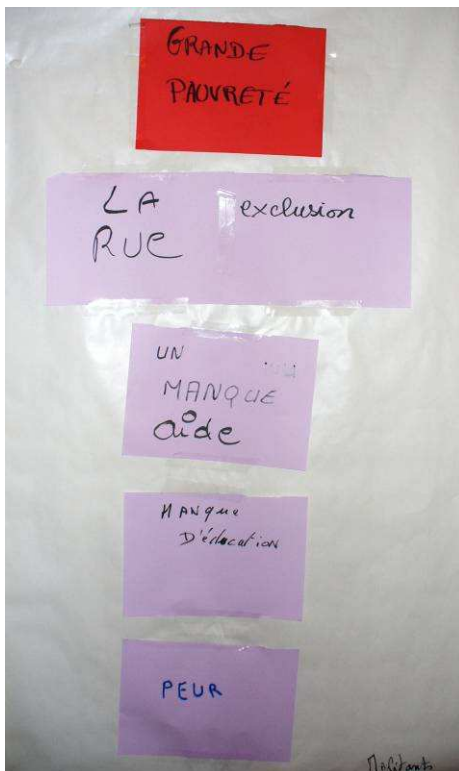 GRANDE
PAUVRETÉ
LA
RUE
exclusion
UN
MANQUE
aide
MANque
D'éducation
PEUR
Militants